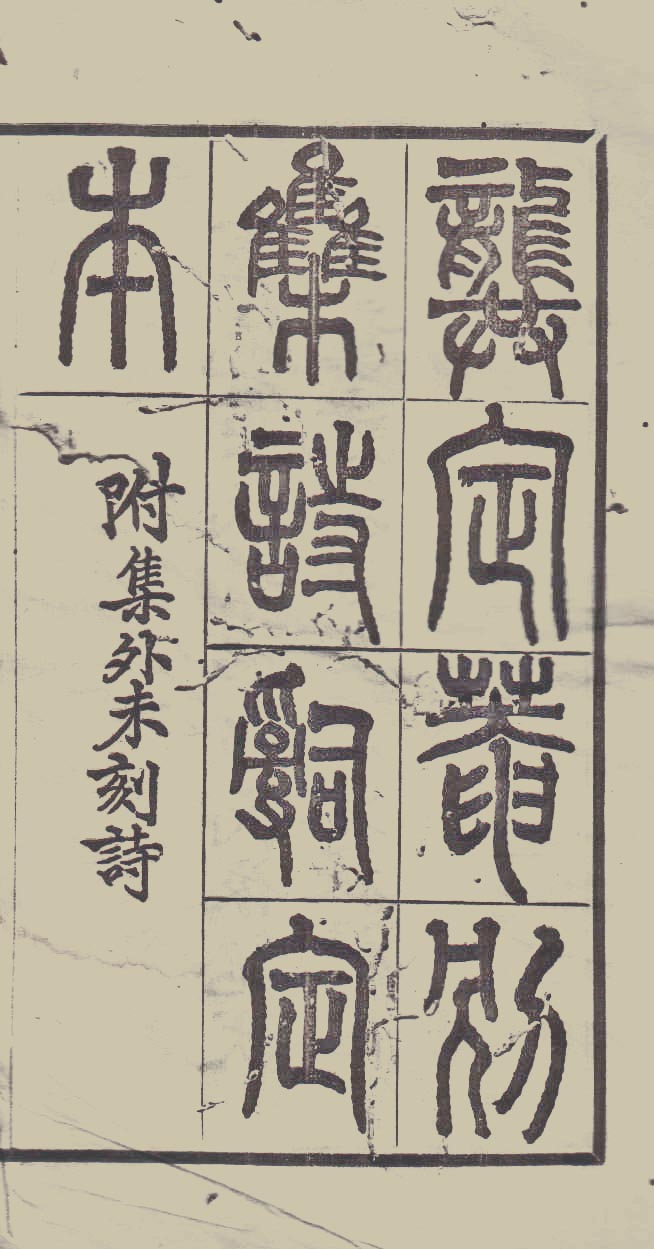 龔定菴別
集詩詞定
本
附集外未刻詩